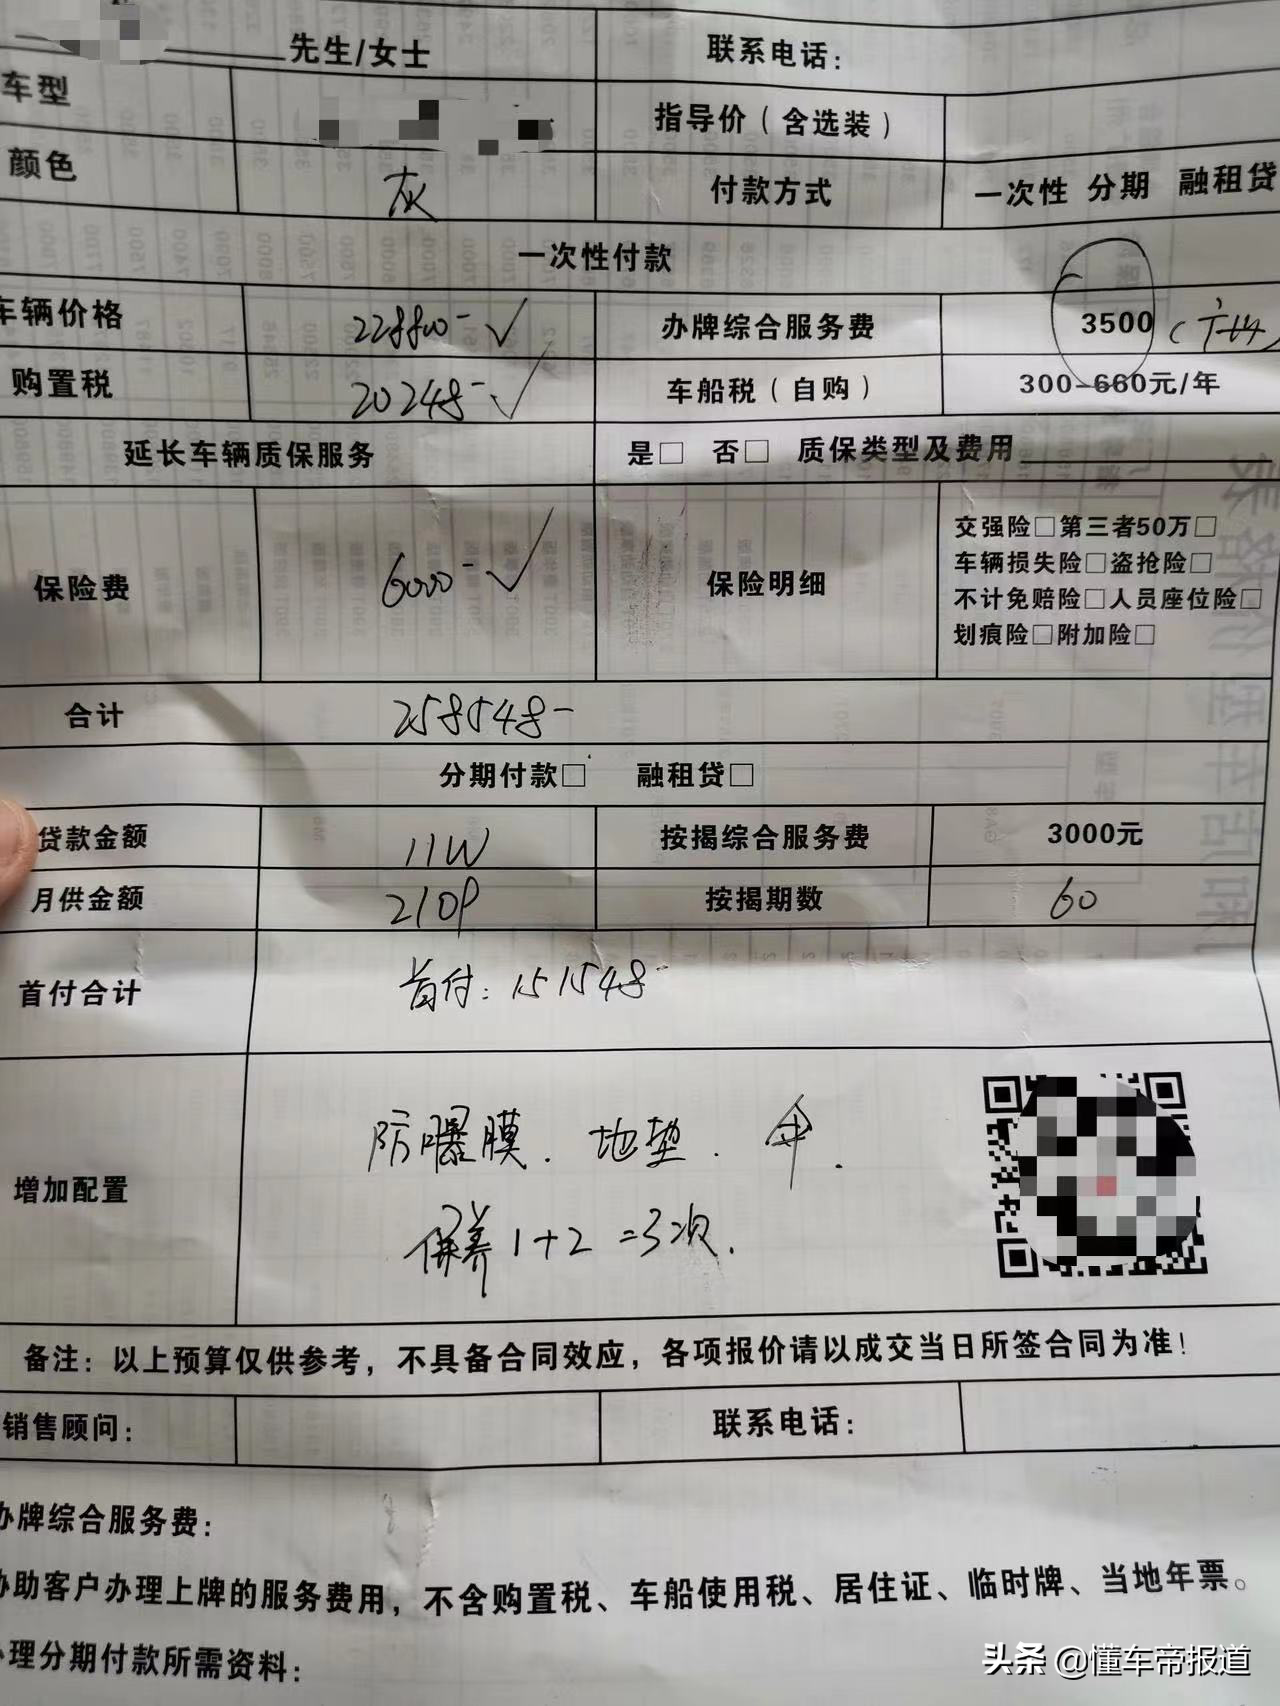 先生/女士 联系电话：
车型 指导价（含选装）
颜色 灰 付款方式 一次性 分期 融租贷
一次性付款
车辆价格 228800- √ 办牌综合服务费 3500
购置税 20248- √ 车船税（自购） 300-660元/年
延长车辆质保服务 是□ 否□ 质保类型及费用
保险费 6000- √ 保险明细 交强险□第三者50万□
车辆损失险□盗抢险□
不计免赔险□人员座位险□
划痕险□附加险□
合计 258548-
分期付款□ 融租贷□
贷款金额 11W 按揭综合服务费 3000元
月供金额 2109 按揭期数 60
首付合计 首付：151548-
增加配置 防曝膜. 地垫. 伞.
保养1+2=3次.
备注：以上预算仅供参考，不具备合同效应，各项报价请以成交当日所签合同为准！
销售顾问： 联系电话：
办牌综合服务费：
协助客户办理上牌的服务费用，不含购置税、车船使用税、居住证、临时牌、当地年票。
办理分期付款所需资料：
头条 @懂车帝报道